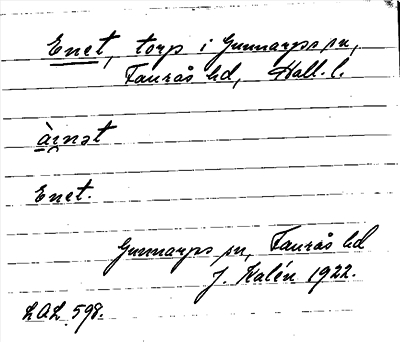 Enet, torp i Gunnarps sn,
Faurås hd, Hall. l.
àı̯nət
Enet.
Gunnarps sn, Faurås hd
J. Kalén 1922.
LAL 598.